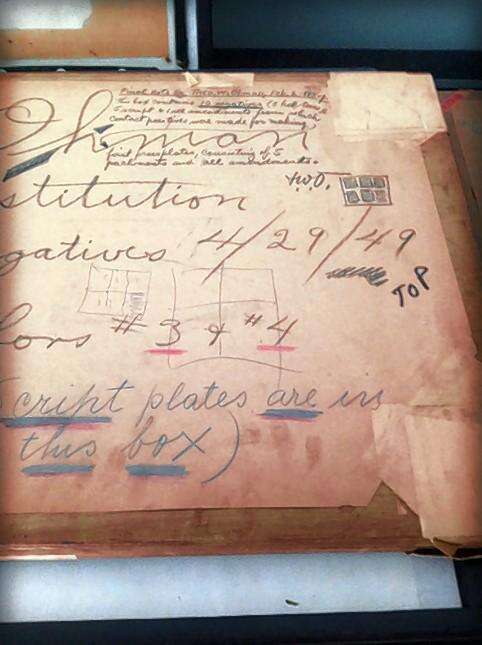 Final note by Theo. W. Ohman, Feb. 2
This box contains 10 negatives (5 half-tone
5 script & all amendments from which
contact positives were made for making
Ohman
foil pressplates, consisting of 5
parchments and all amendments.
T.W.O.
stitution
gatives 4/29/49
TOP
lors # 3 & # 4
(Script plates are in
this box)